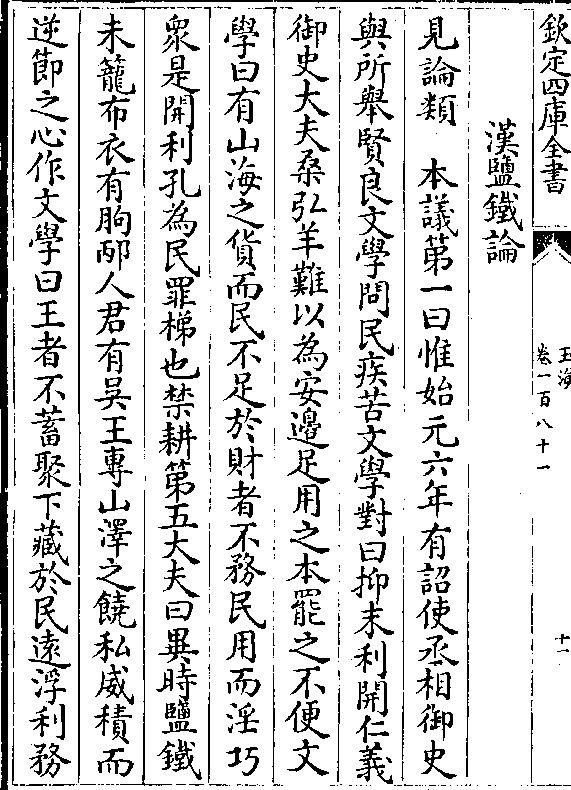 欽定四庫全書
玉海
卷一百八十一
十一
漢鹽鐵論
見論類　本議第一曰惟始元六年有詔使丞相御史
與所舉賢良文學問民疾苦文學對曰抑末利開仁義
御史大夫桑弘羊難以為安邊足用之本罷之不便文
學曰有山海之貨而民不足於財者不務民用而淫巧
衆是開利孔為民罪梯也禁耕第五大夫曰異時鹽鐵
未籠布衣有朐邴人君有吳王專山澤之饒私威積而
逆節之心作文學曰王者不蓄聚下藏於民遠浮利務